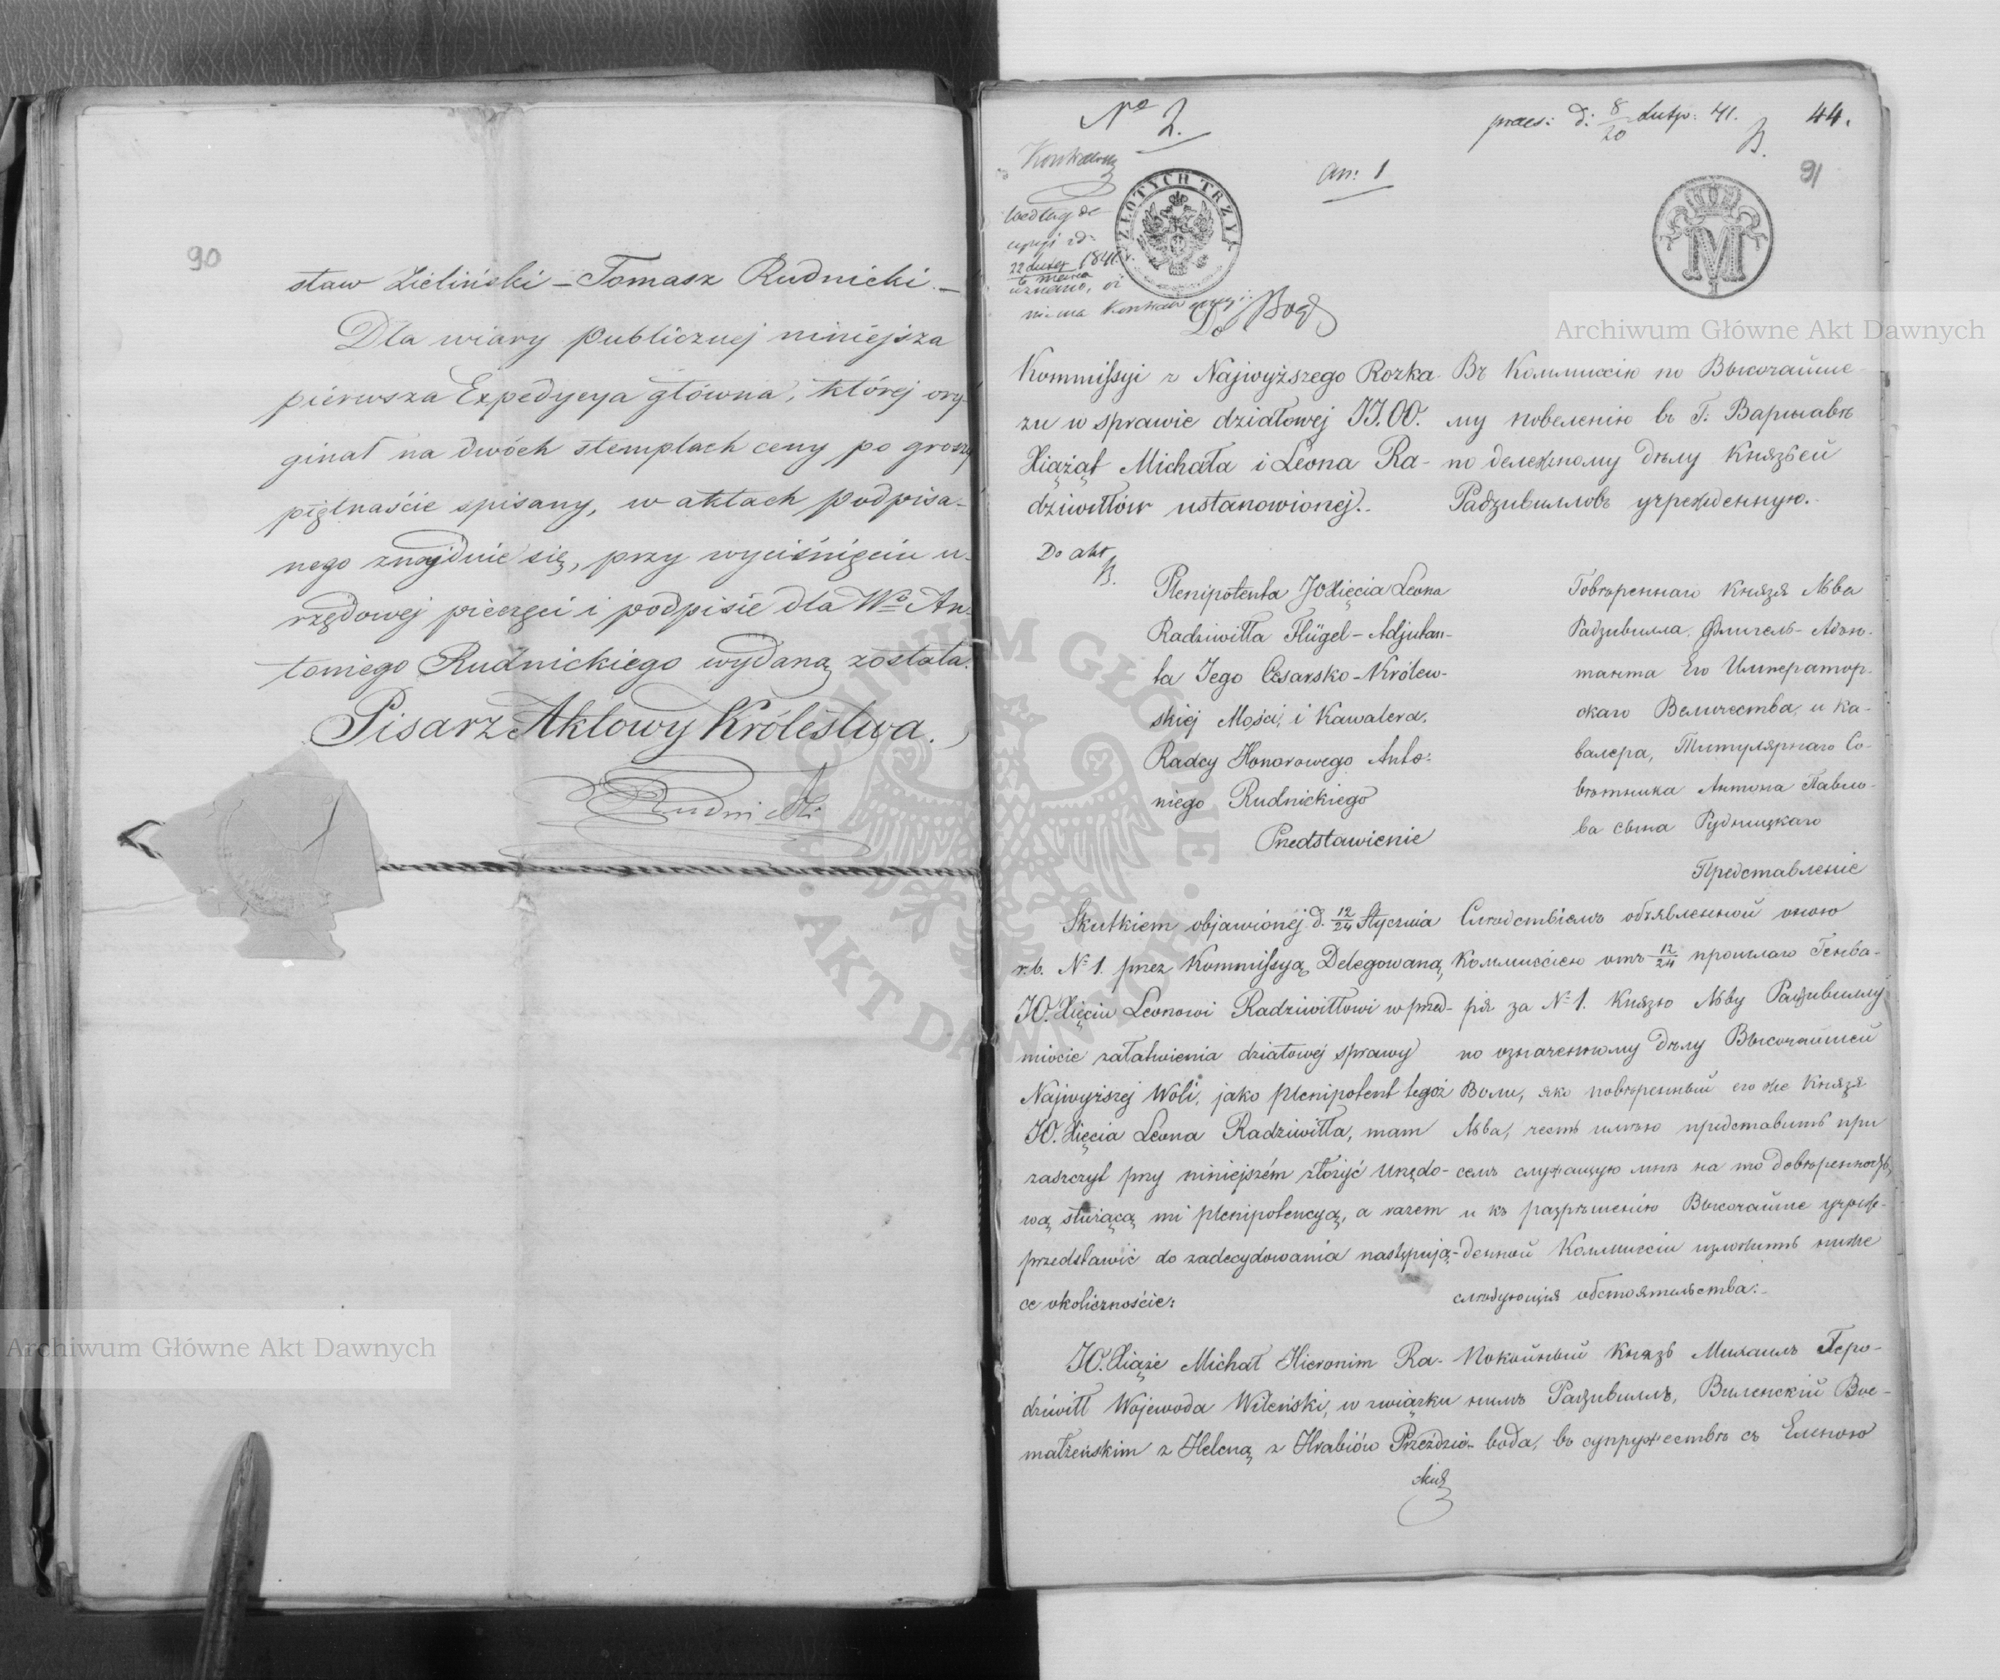 90
sław Zieliński – Tomasz Rudnicki. –
Dla wiary publicznej niniejsza
pierwsza Expedycya główna, której ory-
ginał na dwóch stemplach ceny po groszy
piętnaście spisany, w aktach podpisa-
nego znajduie się, przy wyciśnięciu u-
rzędowej pieczęci i podpisie dla Wo An-
toniego Rudnickiego wydaną została.
Pisarz Aktowy Królestwa.
Rudnicki
No 2.
praes: d: 8/20 Lutp: 41.
44.
91
an: 1
według de
cyzyi z d:
22 Lutego 1841
6 marca
uznano, iż
nie ma
ZŁOTYCH TRZY
M
I
Do
Kommissyi z Najwyższego Rozka-
zu w sprawie działowej JJ.OO.
Xiążąt Michała i Leona Ra-
dziwiłłów ustanowionej.
Въ Коммиссію по Высочайше-
му повеленію въ Г: Варшавѣ
по дележному дѣлу Князьей
Радзивилловъ учрежденную.
Do akt
B.
Plenipotenta JOXięcia Leona
Radziwiłła Flügel-Adjutan-
ta Jego Cesarsko-Królew-
skiej Mości, i Kawalera,
Radcy Honorowego Anto:
niego Rudnickiego
Przedstawienie
Повѣреннаго Князя Льва
Радзивилла, Флигель-Адъю-
танта Его Император-
скаго Величества, и ка-
валера, Титулярнаго Со-
вѣтника Антона Павло-
ва сына Рудницкаго
Представленіе
Skutkiem objawionéj d. 12/24 Stycznia
r.b. No 1. przez Kommissyą Delegowaną,
JO. Xięciu Leonowi Radziwiłłowi w przed-
miocie załatwienia działowej sprawy
Najwyższej Woli, jako plenipotent tegoż
JO. Xięcia Leona Radziwiłła, mam
zaszczyt przy niniejszém złożyć Urzędo-
wą służącą mi plenipotencyą, a razem
przedstawić do zadecydowania następują-
ce okoliczności:
Слѣдствіемъ объявленной оною
Коммиссіею отъ 12/24 прошлаго Генва-
ря за No 1. Князю Льву Радзивиллу
по означенному дѣлу Высочайшей
Воли, яко повѣренный его же Князя
Льва, честь имѣю представить при
семъ служащую мнѣ на то довѣренность,
и къ разрѣшенію Высочайше учреж-
денной Коммиссіи изложить ниже
слѣдующія обстоятельства:
JO. Xiąże Michał Hieronim Ra-
dziwiłł Wojewoda Wileński, w związku
małżeńskim z Heleną z Hrabiów Przeździe-
Покойный Князь Михаилъ Геро-
нимъ Радзивиллъ, Виленскій Вое-
вода, въ супружествѣ съ Еленою
ckich
Archiwum Główne Akt Dawnych
Archiwum Główne Akt Dawnych
ARCHIWUM GŁÓWNE · AKT DAWNYCH ·